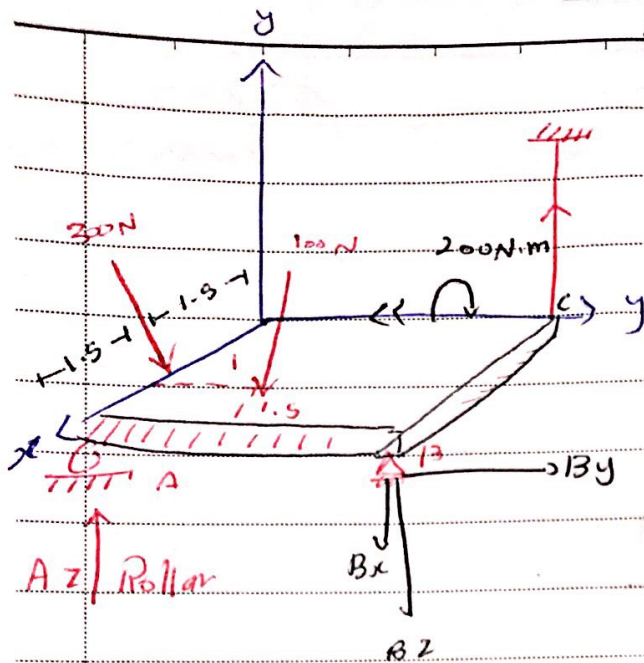 y
300N
100N
200N.m
1.5
1.5
C
y
1
1.5
x
B
A
By
Az
Rollar
Bx
Bz